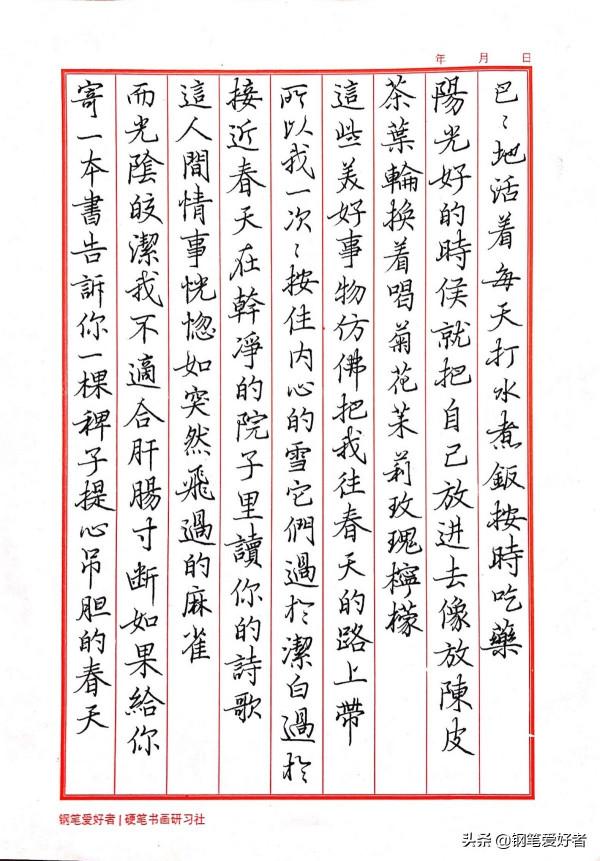 年 月 日
巴〻地活着每天打水煮飯按時吃藥
陽光好的時候就把自己放進去像放陳皮
茶葉輪換着喝菊花茉莉玫瑰檸檬
這些美好事物仿佛把我往春天的路上帶
所以我一次〻按住内心的雪它們過於潔白過於
接近春天在幹凈的院子里讀你的詩歌
這人間情事恍惚如突然飛過的麻雀
而光陰皎潔我不適合肝腸寸断如果給你
寄一本書告訴你一棵稗子提心吊胆的春天
钢笔爱好者 | 硬笔书画研习社
头条 @钢笔爱好者